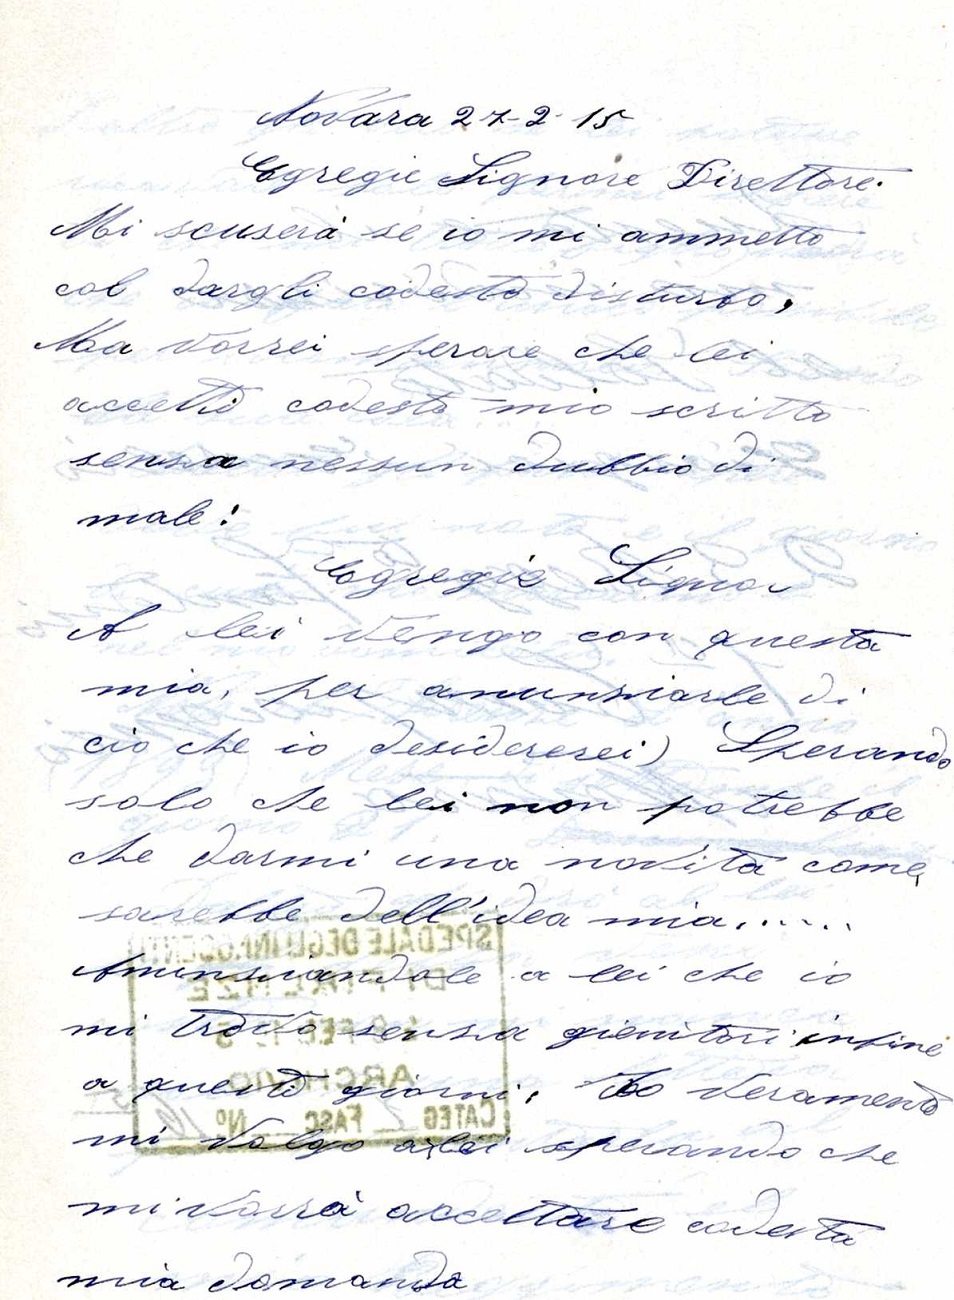 Novara 27-2-15
Egregie Signore Direttore.
Mi scuserà se io mi ammetto
col dargli codesto disturbo,
Ma vorrei sperare che lei
accetti codesto mio scritto
sensa nessun dubbio di
male!
Egregie Signor
A lei vengo con questa
mia, per anunsiarle di
cio che io desidererei) Sperando
solo che lei non potrebbe
che darmi una novità come
sarebbe dell'idea mia.....
Anunsiandole a lei che io
mi trovo sensa gienitori infine
a questi giorni, Io veramente
mi volgo a lei sperando che
mi vorrà accettare codesta
mia domanda
SPEDALE DEGLI INNOCENTI
DI FIRENZE
FEB
ARCHIVIO
CATEG 2 FASC Nº 16